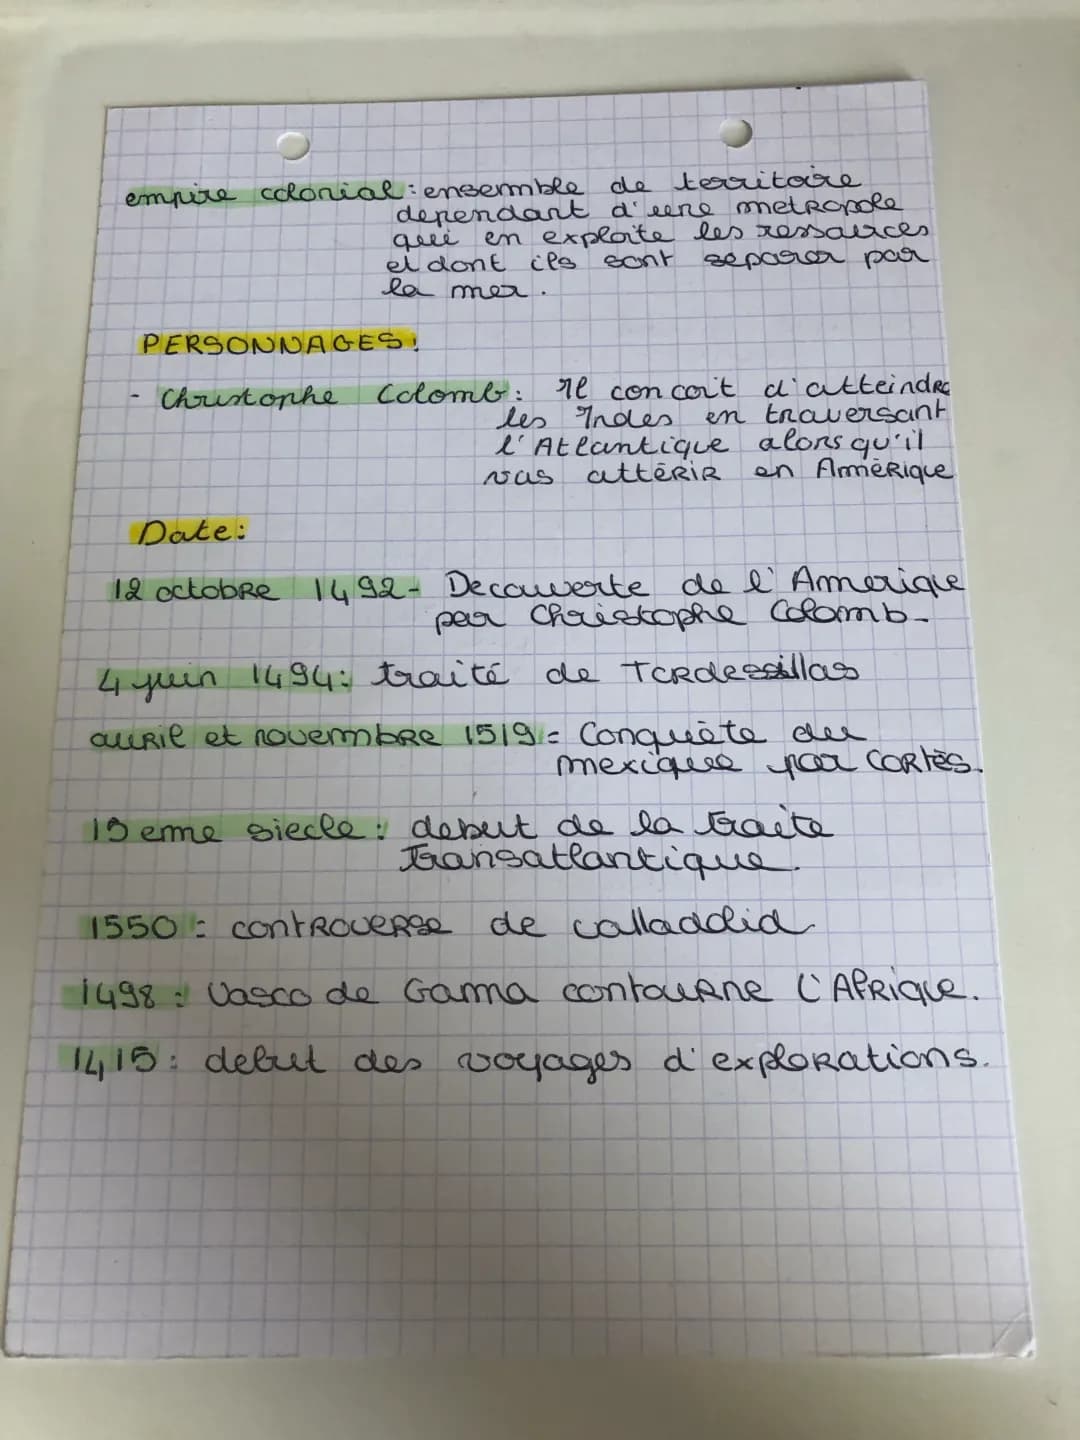 empire colonial : ensemble de territoire
dependant d'une metropole
qui en exploite les ressources
et dont ils sont séparer par
la mer.
PERSONNAGES:
- Christophe Colomb: Il concoit d'atteindre
les Indes en traversant
l'Atlantique alors qu'il
vas attérir en Amérique
Date:
12 octobre 1492- Decouverte de l'Amerique
par Christophe Colomb-
4 juin 1494: traité de Tordessillas
avril et novembre 1519= Conquète du
mexique par CORTÈS.
15 eme siecle: debut de la traite
transatlantique.
1550 : controverse de valladolid
1498 : Vasco de Gama contourne l'Afrique.
1415: debut des voyages d'explorations.